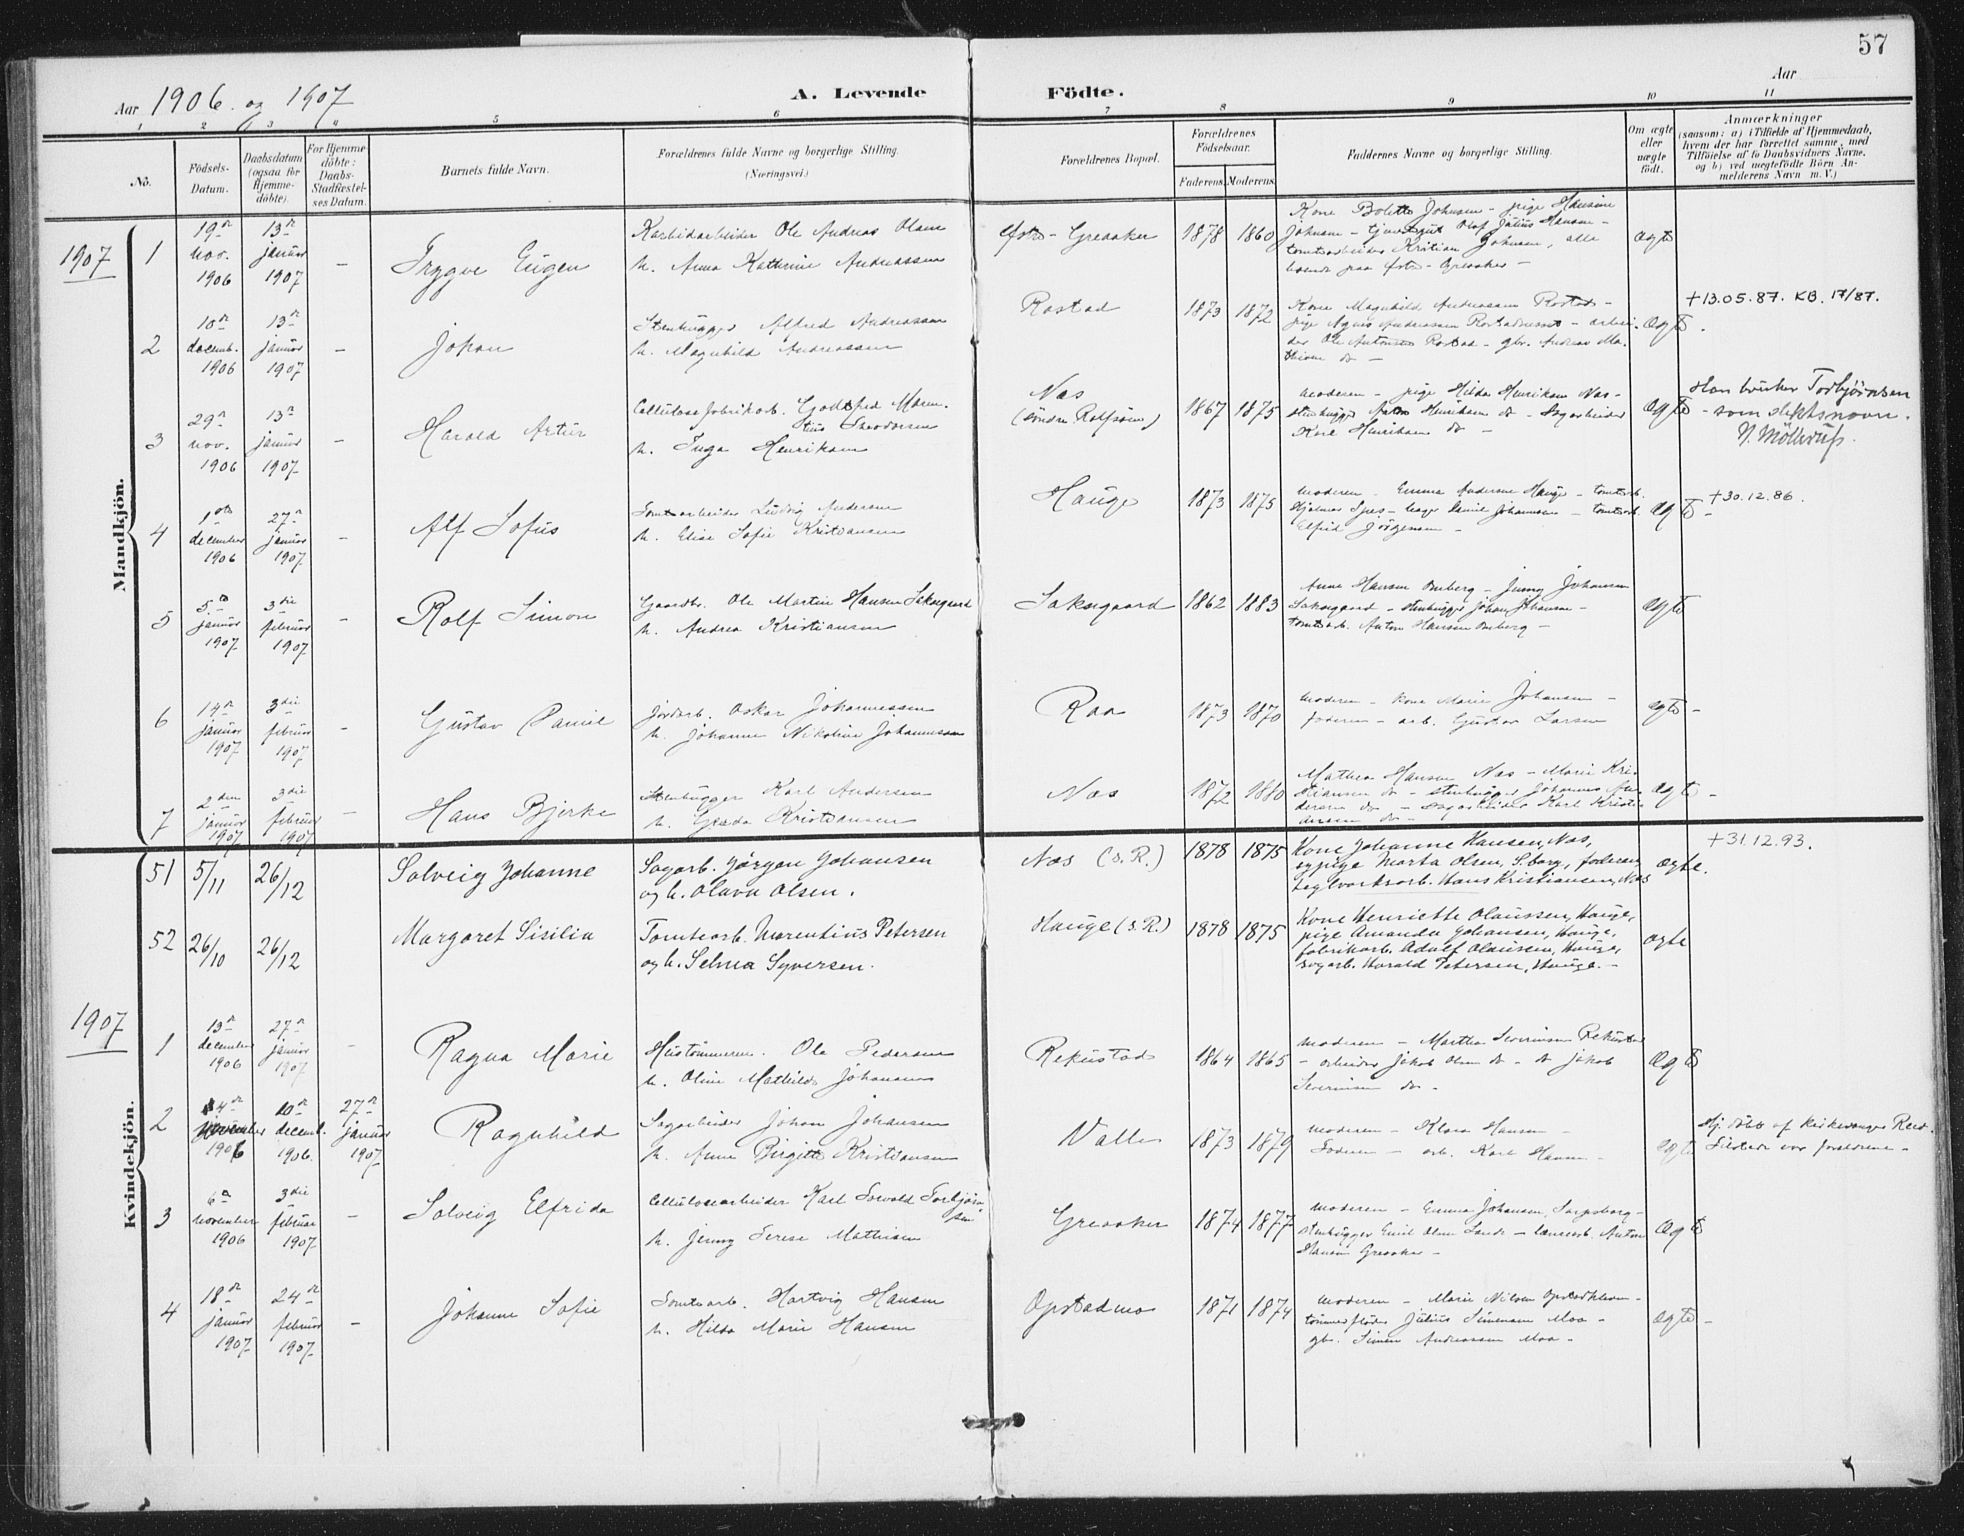 57
Aar 1906 og 1907
A. Levende Födte.
Aar
1 2 3 4 5 6 7 8 9 10 11
No.
Födsels-Datum.
Daabsdatum (ogsaa for Hjemme-döbte).
For Hjemme-döbte: Daabs-Stadfæstel-ses Datum.
Barnets fulde Navn.
Forældrenes fulde Navne og borgerlige Stilling.
(Næringsvei.)
Forældrenes Bopæl.
Forældrenes Födselsaar.
Faderens. Moderens.
Faddernes Navne og borgerlige Stilling.
Om ægte eller uægte födt.
Anmærkninger
(saasom: a) i Tilfælde af Hjemmedaab,
hvem der har forrettet samme, med
Tilföielse af to Daabsvidners Navne,
og b) ved uægtefödte Börn An-
melderens Navn m. V.)
1907
Mandkjön.
1
19de nov. 1906
13de januar 1907
-
Trygve Eugen
Karbidarbeider Ole Andreas Olsen
h. Anna Kathrine Andreassen
Östre-Greaaker
1878 1860
Kone Bolette Johnsen - pige Hansine
Johnsen - tjenestegut Olof Julius Hansen -
tomtearbeider Kristian Johnsen, alle
boende paa Östre-Greaaker -
ægte
2
10de decemb. 1906
13de januar 1907
-
Johan
Stenhugger Alfred Andreassen
h. Magnhild Andreassen
Rostad
1873 1872
Kone Magnhild Andreassen Rostad -
pige Agnes Andreassen Rostadneset - arbei-
der Ole Antonsen Rostad - gbr. Andreas Ma-
thisen do -
ægte.
+13.05.87. KB. 17/87.
3
29de nov. 1906
13de januar 1907
-
Harald Artur
Cellulosefabrikarb. Godtfred Maren-
tius Theodorsen
h. Inga Henriksen
Nes
(söndre Rolfsöen)
1867 1875
moderen - pige Hilda Henriksen Nes -
stenhugger Anton Henriksen do - Sagarbeider
Karl Henriksen do -
ægte
Han bruker Torbjörnsen
- som slektsnavn.
4
1ste december 1906
27de januar 1907
-
Alf Sofus
Tomtearbeider Ludvig Andersen
h. Elise Sofie Kristiansen
Hauge
1873 1875
moderen - Emma Andersen Hauge - tomtearb.
Hjelmar - Daniel Johannesen - tomtearb.
Elfrid Jörgensen -
ægte -
+30.12.86.
5
5te januar 1907
3die februar 1907
-
Rolf Simon
Gaardbr. Ole Martin Hansen Saksegaard
h. Andrea Kristiansen
Saksegaard
1862 1883
Anne Hansen Omberg - Jenny Johansen
Saksegaard - stenhugger Johan Johansen -
tomtearb. Anton Hansen Omberg -
ægte
6
14de januar 1907
3die februar 1907
-
Gustav Daniel
Jordarb. Oskar Johannessen
h. Johanne Nikoline Johannessen
Raa
1873 1870
moderen - kone Marie Johansen -
faderen - arb. Gustav Larsen
ægte -
7
2den januar 1907
3die februar 1907
-
Hans Bjerke
Stenhugger Karl Andersen
h. Gusda Kristiansen
Nes
1872 1880
Mathea Hansen Nes - Marie Kri-
stiansen do - stenhugger Johannes An-
dersen do - Sagarbeider Karl Kristi-
ansen do -
ægte -
51
5/11
26/12
Solveig Johanne
Sagarb. Jørgen Johansen
og h. Olava Olsen.
Nes (S.R.)
1878 1875
Kone Johanne Hansen, Nes,
og pige Marta Olsen, S.borg, faderen,
teglverksarb. Hans Kristiansen, Nes
ægte.
+31.12.93.
52
26/10
26/12
Margaret Sisilia
Tomtearb. Marentius Petersen
og h. Selma Syversen.
Hauge (S.R.)
1878 1875
Kone Henriette Olaussen, Hauge,
pige Amanda Johansen, Hauge,
fabrikarb. Adolf Olaussen, Hauge,
sagarb. Harald Petersen, Hauge. -
ægte
1907
Kvindekjön.
1
13de december 1906
27de januar 1907
-
Ragna Marie
Hustömmerm. Ole Pedersen
h. Oline Mathilde Johansen
Rekustad
1864 1865
moderen - Martha Severinsen Rekustad
- arbeider Jakob Olsen do - do Jakob
Severinsen do -
ægte
2
4de november 1906
10de decemb. 1906.
27de januar 1907
Ragnhild
Sagarbeider Johan Johansen
h. Anna Birgitte Kristiansen
Valle
1873 1879
moderen - Klara Hansen -
Faderen - arb. Karl Hansen -
ægte
Hj. döbt af kirkesanger
Tilstede var forældrene -
3
6te november 1906
3die februar 1907
-
Solveig Elfrida
Cellulosearbeider Karl Torvald Torbjörn-
sen
h. Jenny Terese Mathisen
Greaaker
1874 1877
moderen - Emma Johansen, Sarpsborg -
stenhugger Emil Olsen Sande - tomtearb. Anton
Hansen Greaaker -
ægte
4
18de januar 1907
24de februar 1907
-
Johanne Sofie
Tomtearb. Hartvig Hansen
h. Hilda Marie Hansen
Opstadmoe
1871 1874
moderen - Marie Nilsen Opstadmoen -
tömmerflöder Julius Simensen Moe -
gbr. Simen Andreassen Moe -
ægte -